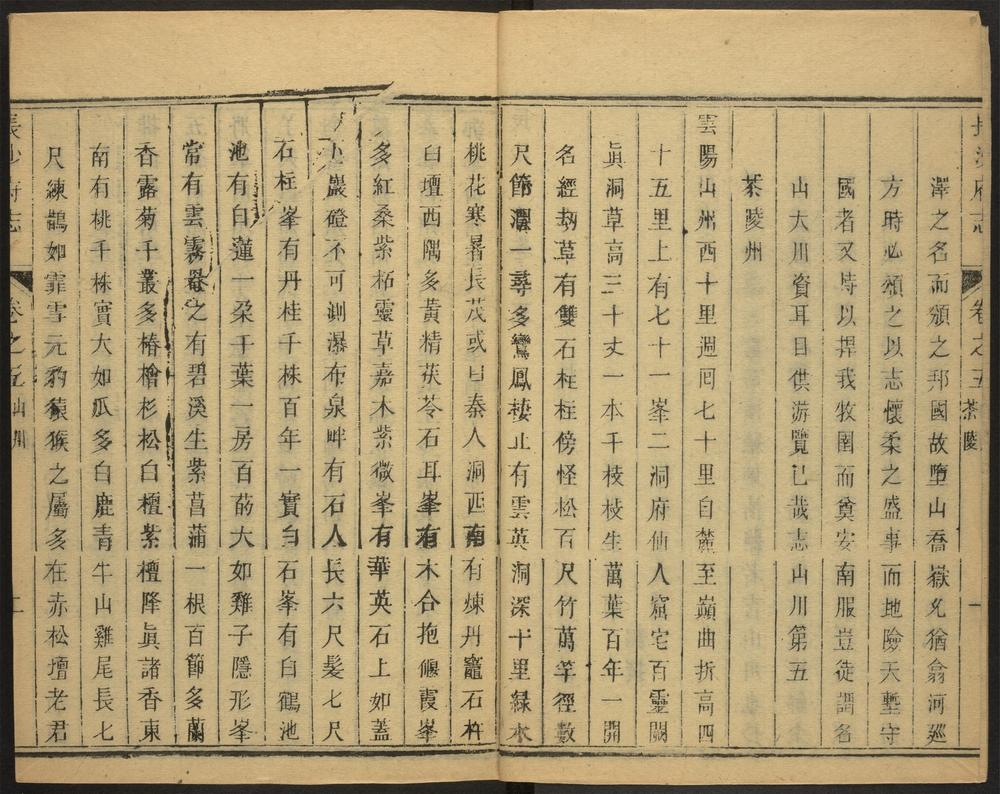 長沙府志 卷之五 茶陵 一
澤之名而頒之邦國故墮山喬嶽允猶翕河廵
方時必頒之以志懷柔之盛事而地險天塹守
國者又恃以捍我牧圉而奠安南服豈徒謂名
山大川資耳目供游覽已哉志山川第五
茶陵州
雲陽山州西十里週囘七十里自麓至巔曲折高四
十五里上有七十一峯二洞府仙人窟宅百靈閟
眞洞草高三十丈一本千枝枝生萬葉百年一開
名經劫草有雙石柱柱傍怪松百尺竹萬竿徑數
尺節濶一尋多鸞鳳棲止有雲英洞深十里緑水
桃花寒暑長茂或曰秦人洞西南有煉丹竈石杵
臼壇西隅多黃精茯苓石耳峯有木合抱偃霞峯
多紅桑紫栢靈草嘉木紫微峯有華英石上如蓋
下巖磴不可測瀑布泉畔有石人長六尺髮七尺
石柱峯有丹桂千株百年一實白石峯有白鶴池
池有白蓮一朶千葉一房百菂大如雞子隱形峯
常有雲霧畧之有碧溪生紫菖蒲一根百節多蘭
香露菊千叢多椿檜杉松白檀紫檀降眞諸香東
南有桃千株實大如瓜多白鹿青牛山雞尾長七
尺練鵲如霏雪元豹猿猴之屬多在赤松壇老君
長沙府志 卷之五 山川 二